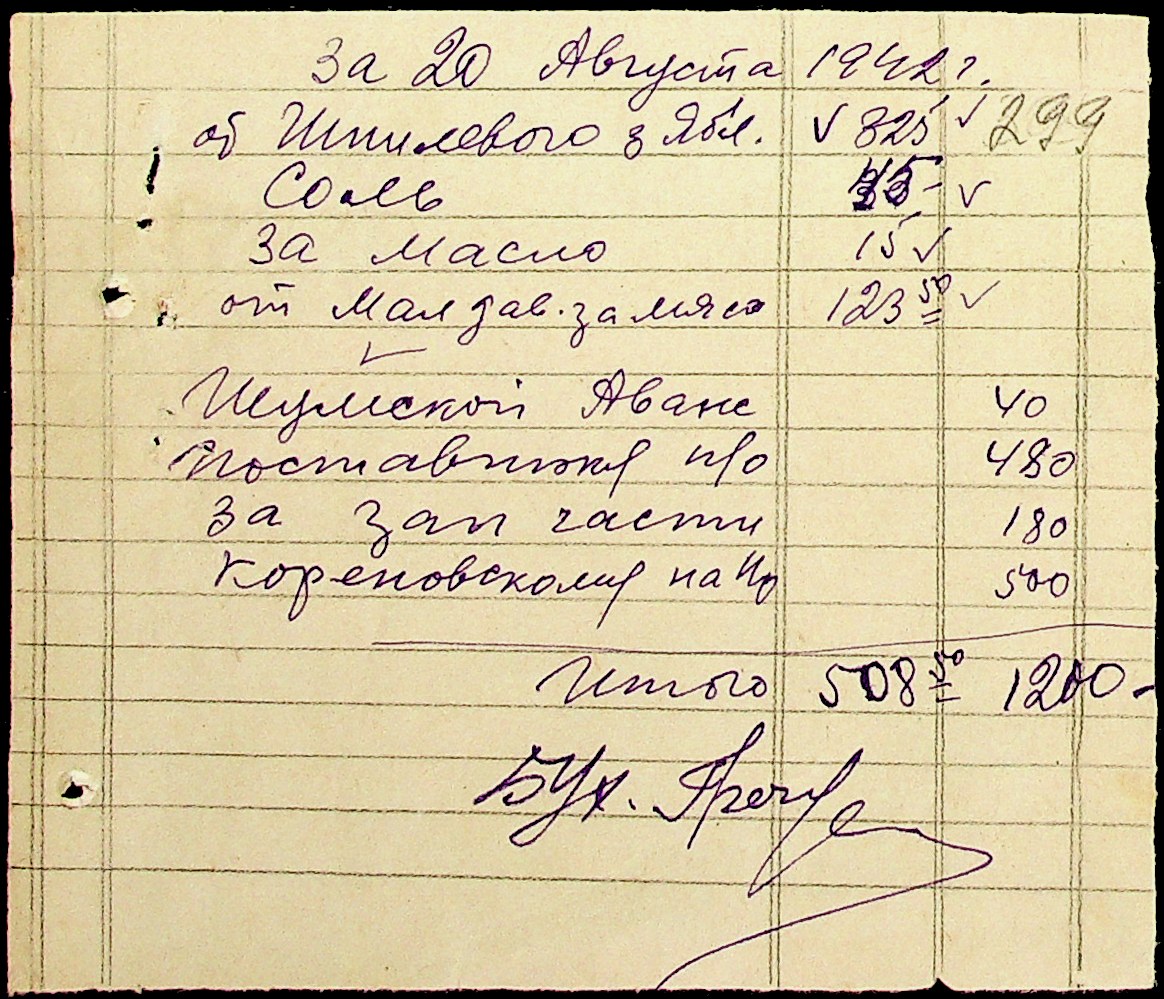 За 20 Августа 1942 г.
от Шпилевого з Ябл. 325 299
Соль 45-
За масло 15
от Малдав. за мясо 123 50
Шумской Аванс 40
Поставники п/о 480
За зап части 180
Кореновскому на 500
Итого 508 50 1200-
Бух.